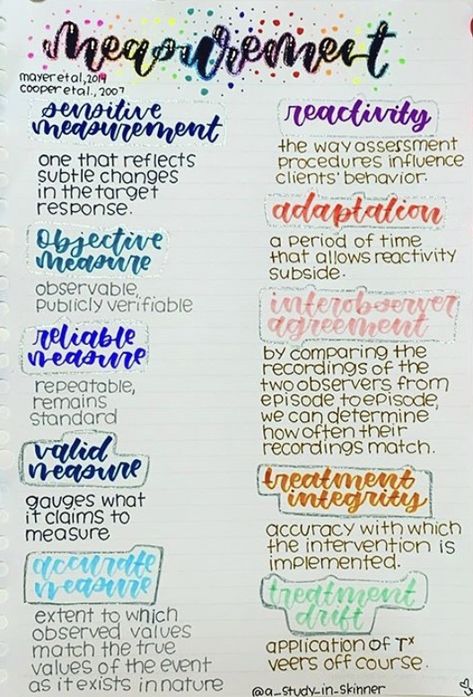 measurement
mayer et al, 2014
cooper et al., 2007
sensitive
measurement
one that reflects
subtle changes
in the target
response.
objective
measure
observable,
publicly verifiable
reliable
measure
repeatable,
remains
standard
valid
measure
gauges what
it claims to
measure
accurate
measure
extent to which
observed values
match the true
values of the event
as it exists in nature
reactivity
the way assessment
procedures influence
clients' behavior.
adaptation
a period of time
that allows reactivity
subside.
interobserver
agreement
by comparing the
recordings of the
two observers from
episode to episode,
we can determine
how often their
recordings match.
treatment
integrity
accuracy with which
the intervention is
implemented.
treatment
drift
application of Tx
veers off course.
@a_study_in_skinner